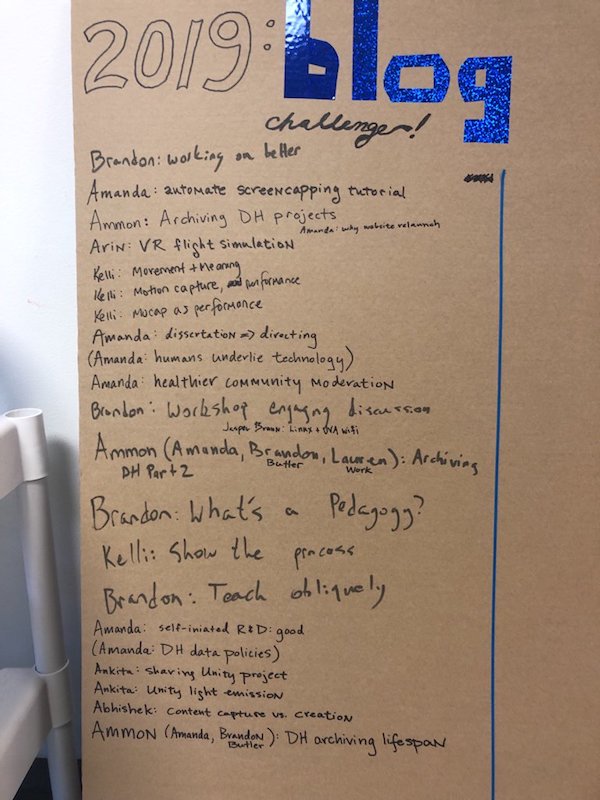 2019: blog
challenge!
Brandon: working on better
Amanda: automate screencapping tutorial
Ammon: Archiving DH projects
Amanda: why website relaunch
Arin: VR flight simulation
Kelli: Movement + Meaning
Kelli: Motion capture, performance
Kelli: Mocap as performance
Amanda: dissertation => directing
(Amanda: humans underlie technology)
Amanda: healthier community moderation
Brandon: Workshop engaging discussion
Jesper Braun: Linux + UVA wifi
Ammon (Amanda, Brandon, Lauren): Archiving
DH Part 2 Butler Work
Brandon: What's a Pedagogy?
Kelli: Show the process
Brandon: Teach obliquely
Amanda: self-iniated R&D: good
(Amanda: DH data policies)
Ankita: sharing Unity project
Ankita: Unity light emission
Abhishek: Content capture vs. creation
Ammon (Amanda, Brandon): DH archiving lifespan
Butler